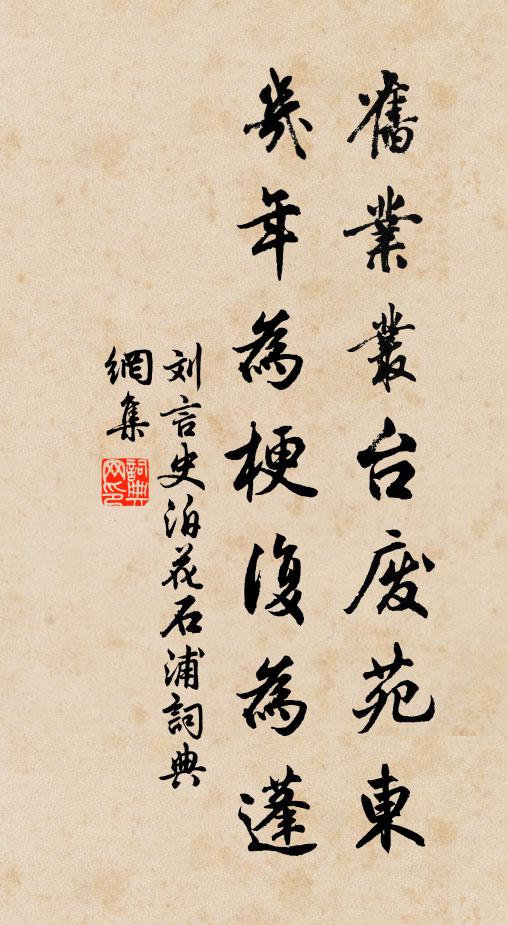 舊業叢台廢苑東
幾年為梗復為蓬
刘言史泊花石浦詞典
網集
詞典網印